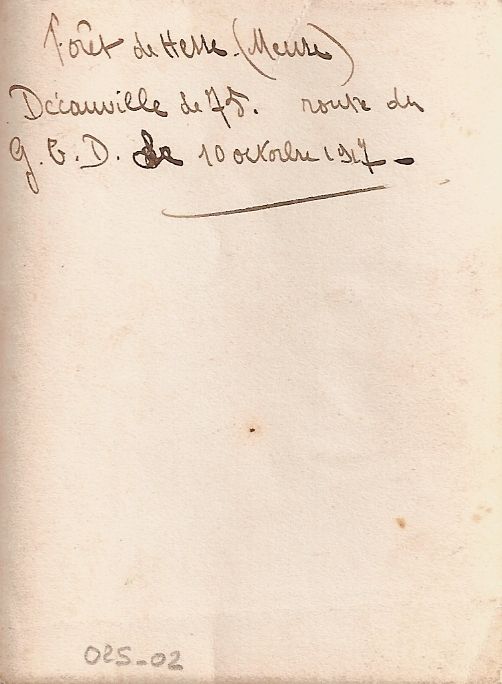 Forêt de Hesse (Meuse)
Décauville de 75. route du
G.B.D. le 10 octobre 1917 -
025-02